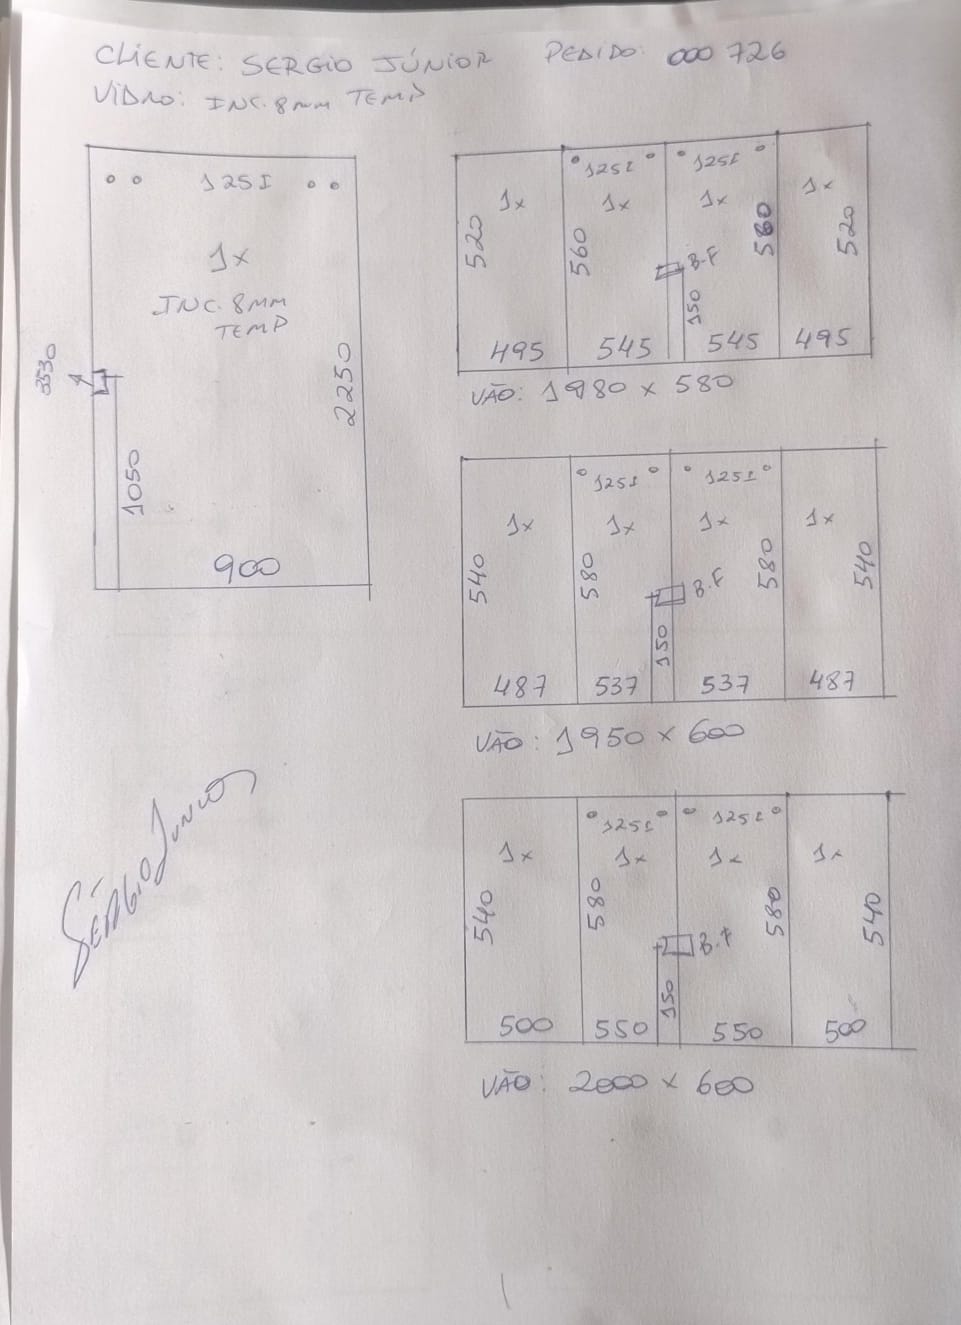 CLIENTE: SERGIO JÚNIOR PEDIDO: 000726
VIDRO: INC. 8MM TEMP
125I
1x
INC. 8MM
TEMP
3530
1050
2250
900
125I 125I
1x 1x 1x 1x
520 560 560 520
B.F
150
495 545 545 495
VÃO: 1980 x 580
125I 125I
1x 1x 1x 1x
540 580 580 540
B.F
150
487 537 537 487
VÃO: 1950 x 600
125I 125I
1x 1x 1x 1x
540 580 580 540
B.F
150
500 550 550 500
VÃO: 2000 x 600
SÉRGIO JUNIOR